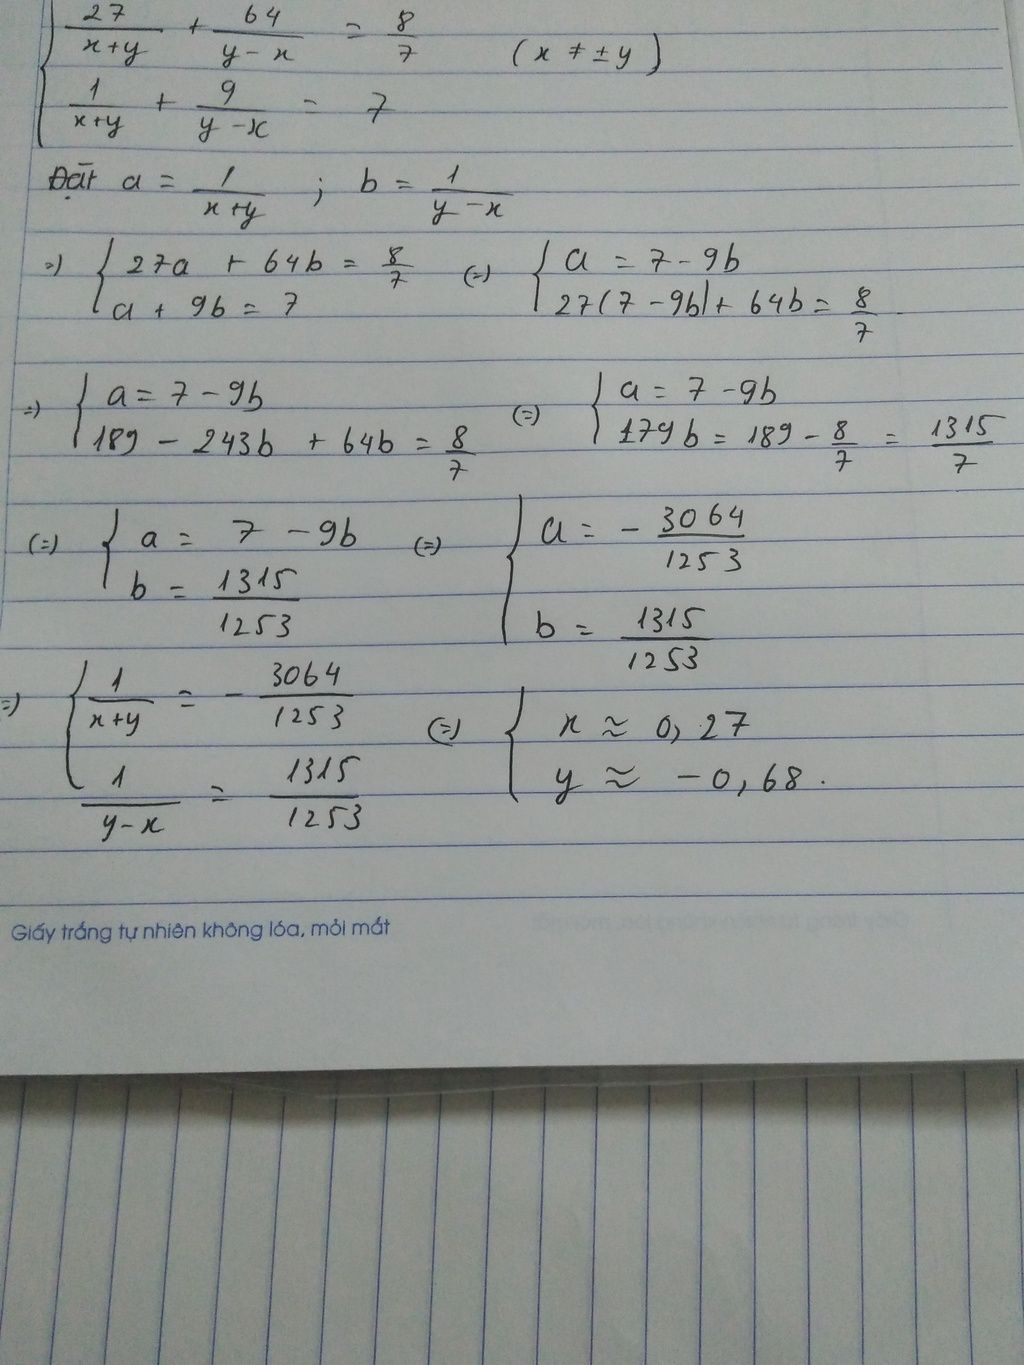 { 27/(x+y) + 64/(y-x) = 8/7 (x ≠ ±y)
1/(x+y) + 9/(y-x) = 7
Đặt a = 1/(x+y) ; b = 1/(y-x)
=) { 27a + 64b = 8/7 (=) { a = 7 - 9b
a + 9b = 7 27(7 - 9b) + 64b = 8/7
=) { a = 7 - 9b (=) { a = 7 - 9b
189 - 243b + 64b = 8/7 179b = 189 - 8/7 = 1315/7
(=) { a = 7 - 9b (=) { a = - 3064/1253
b = 1315/1253 b = 1315/1253
=) { 1/(x+y) = - 3064/1253 (=) { x ≈ 0,27
1/(y-x) = 1315/1253 y ≈ -0,68.
Giấy trắng tự nhiên không lóa, mỏi mắt